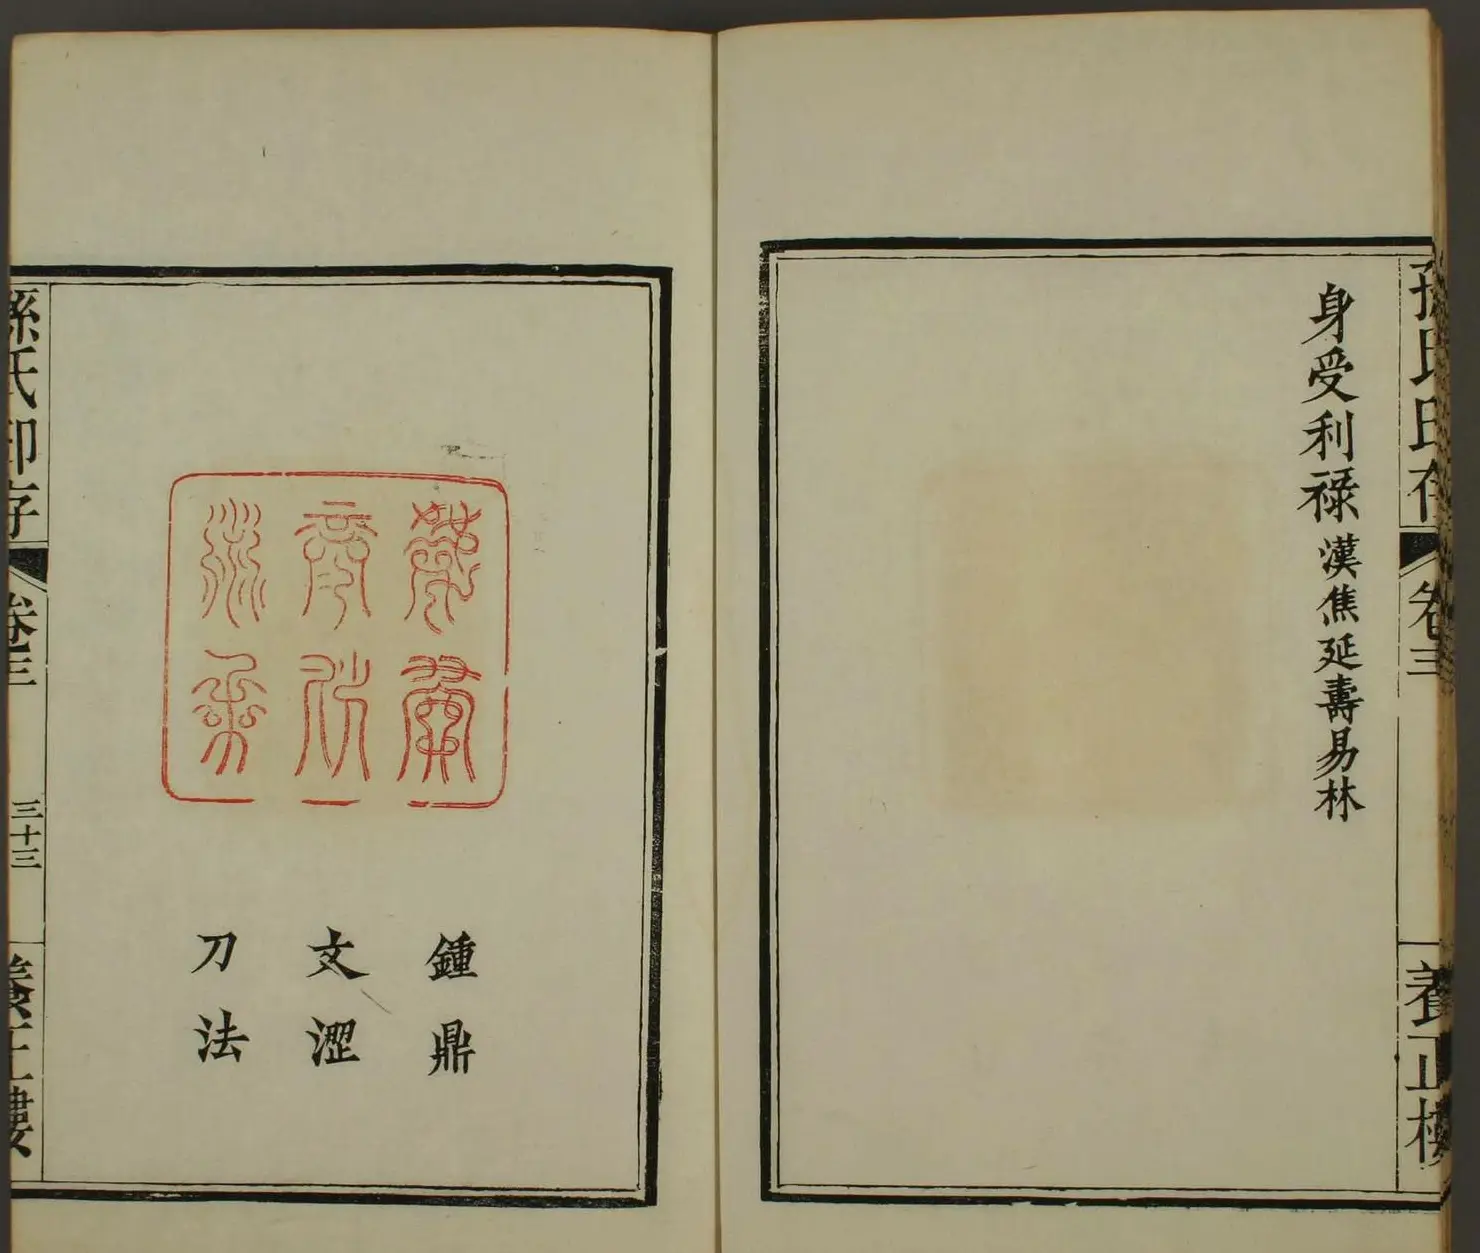 孫氏印存
卷三
養正樓
身受利祿漢焦延壽易林
鍾鼎
文澀
刀法
孫氏印存
卷三
三十三
養正樓